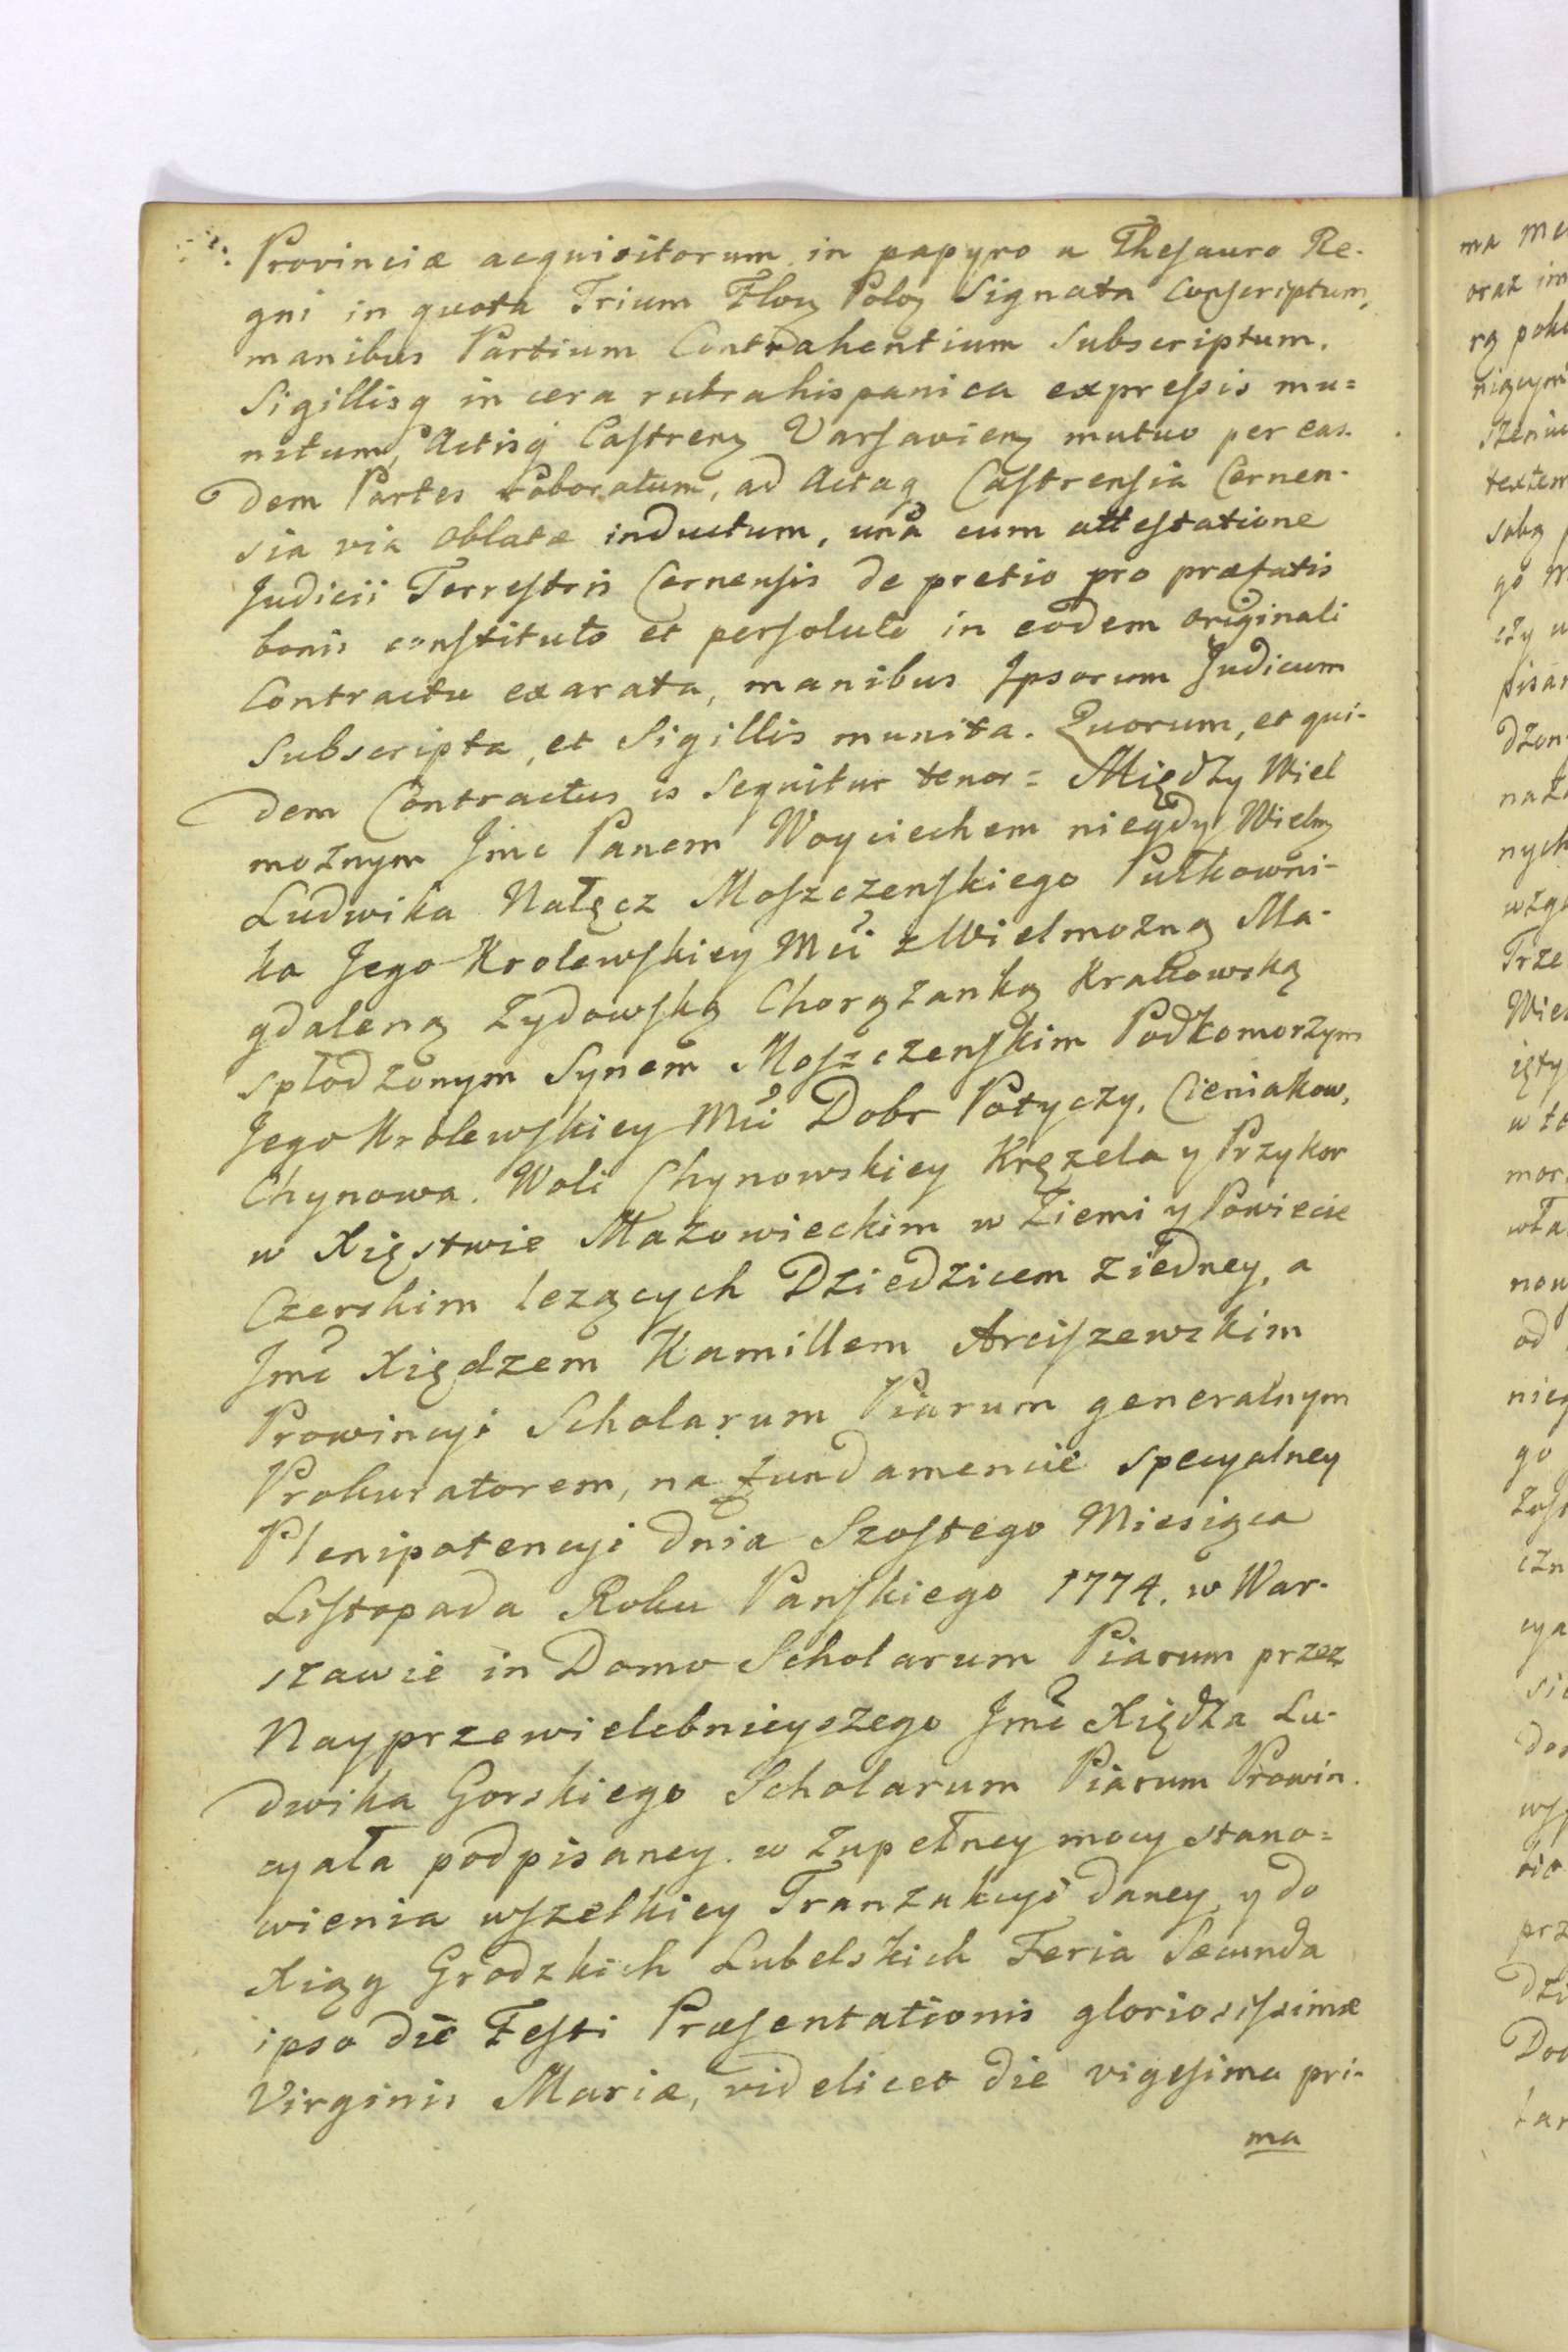 Provinciæ acquisitorum in papyro a Thesauro Re-
gni in quota Trium Flor Polor Signata Conscriptum,
manibus Partium Contrahentium Subscriptum.
Sigillisq in cera rubra hispanica expressis mu=
nitum, Actisq Castren Varsavien mutuo per eas-
dem Partes roboratum, ad Actaq Castrensia Cernen-
sia via Oblatæ inductum, unà cum attestatione
Judicii Terrestris Cernensis de pretio pro præfatis
bonis constituto et persoluto in eodem originali
Contractu exarata, manibus Ipsorum Judicum
Subscripta, et Sigillis munita. Quorum, et qui-
dem Contractus is Sequitur tenor = Między Wiel
możnym Jmc Panem Woyciechem niegdy Wielm
Ludwika Nałęcz Moszczenskiego Pułkowni-
ka Jego Krolewskiey Mci z Wielmożną Ma-
gdaleną Zydowską Chorążanką Krakowską
spłodzonym Synem Moszczenskim Podkomorzym
Jego Krolewskiey Mci Dobr Potyczy, Cieniakow,
Chynowa. Woli Chynowskiey Krężela y Przykor
w Xięstwie Mazowieckim w Ziemi y Powiecie
Czerskim leżących Dziedzicem z iedney, a
Jmc Xiędzem Kamillem Arciszewskim
Prowincyi Scholarum Piarum generalnym
Prokuratorem, na fundamencie specyalney
Plenipotencyi dnia Szostego Miesiąca
Listopada Roku Panskiego 1774. w War-
szawie in Domo Scholarum Piarum przez
Nayprzewielebnieyszego Jmc Xiędza Lu-
dwika Gorskiego Scholarum Piarum Prowin.
cyała podpisaney. w zupełney mocy stano=
wienia wszelkiey Tranzakcyi daney, y do
Xiąg Grodzkich Lubelskich Feria Secunda
ipso die Festi Præsentationis gloriosissimæ
Virginis Mariæ, videlicet die vigesima pri-
ma